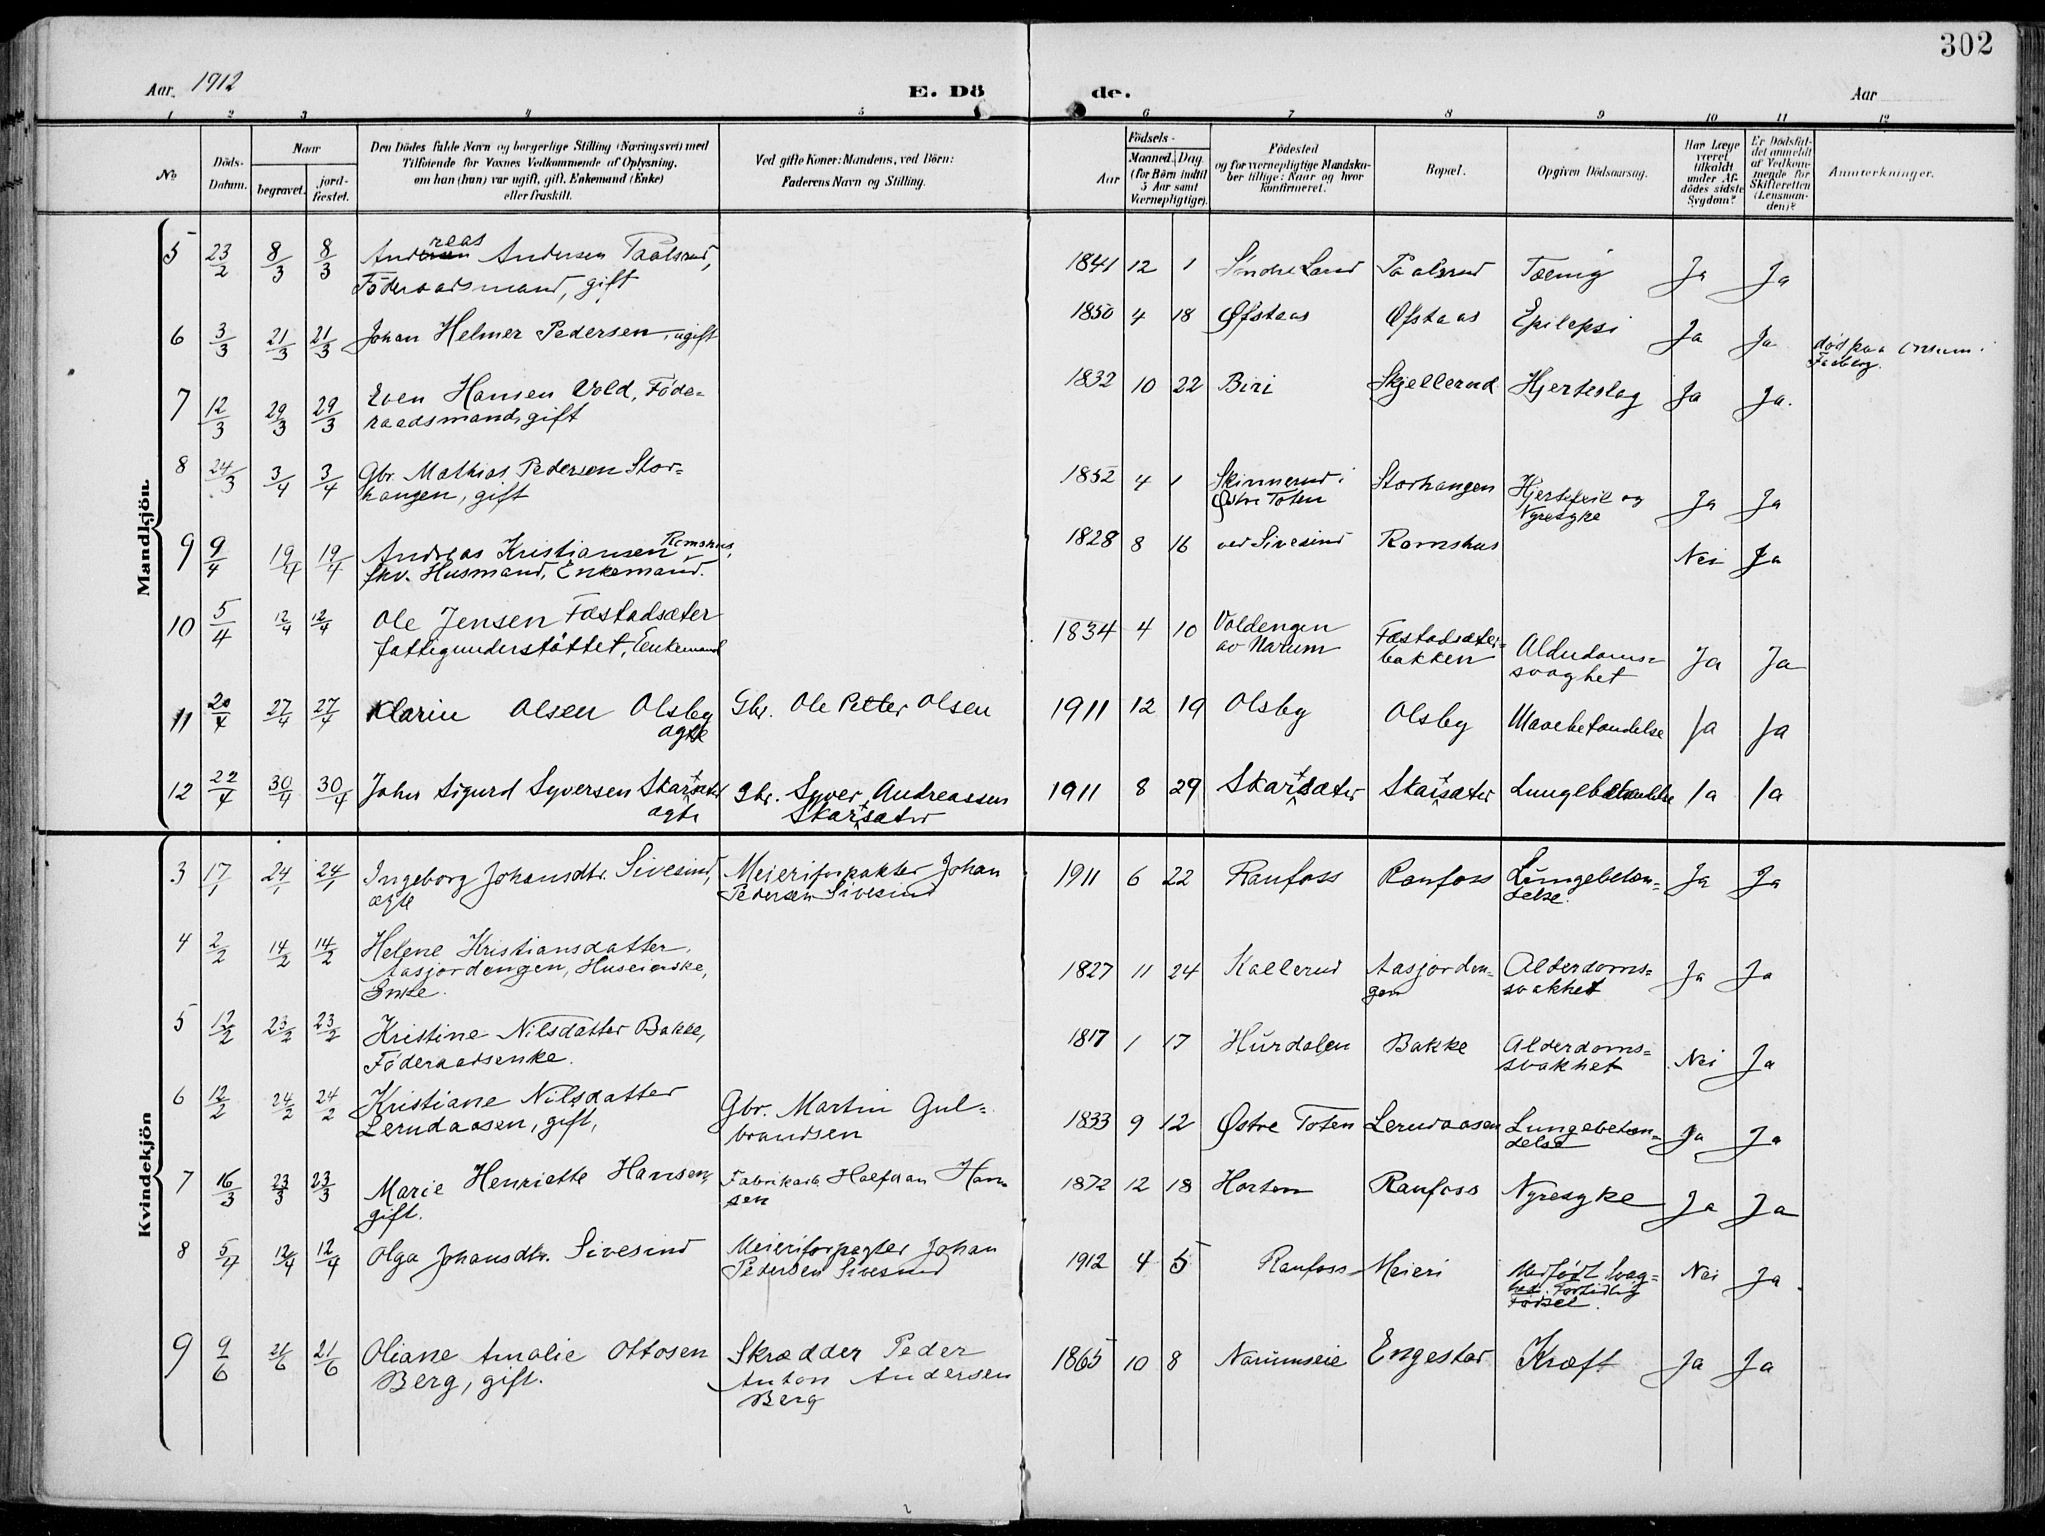 302
Aar. 1912
E. Döde.
Aar
1 2 3 4 5 6 7 8 9 10 11 12
No
Döds-
Datum.
Naar
begravet.
jord-
fæstet.
Den Dödes fulde Navn og borgerlige Stilling (Næringsvei) med
Tilföiende for Voxnes Vedkommende af Oplysning,
om han (hun) var ugift, gift, Enkemand (Enke)
eller fraskilt.
Ved gifte Koner: Mandens, ved Börn:
Faderens Navn og Stilling.
Födsels-
Aar
Maaned. Dag
(for Börn indtil
5 Aar samt
Værnepligtige).
Födested
og for værnepligtige Mandska-
ber tillige: Naar og hvor
konfirmeret.
Bopæl.
Opgiven Dödsaarsag.
Har Læge
været
tilkaldt
under Af-
dödes sidste
Sygdom?
Er Dödsfal-
det anmeldt
af Vedkom-
mende for
Skifteretten
(Lensman-
den)?
Anmærkninger.
Mandkjön.
5 23/2 8/3 8/3 Andreas Andersen Paalsrud, 1841 12 1 Söndre Land Paalsrud Tæring Ja Ja
Föderaadsmand, gift
6 3/3 21/3 21/3 Johan Helmer Pedersen, ugift 1850 4 18 Øfstaas Øfstaas Epilepsi Ja Ja död paa
Faaberg.
7 12/3 29/3 29/3 Even Hansen Vold, Föde- 1832 10 22 Biri Skjellerud Hjerteslag Ja Ja.
raadsmand, gift
8 24/3 3/4 3/4 Gbr. Mathias Pedersen Stor- 1852 4 1 Skinnerud i Storhangen Hjertefeil og Ja Ja
hangen, gift Østre Toten Nyresyke
9 9/4 19/4 19/4 Andreas Kristiansen Romshus, 1828 8 16 ved Sivesind Romshus Nei Ja
fhv. Husmand, Enkemand.
10 5/4 12/4 12/4 Ole Jensen Fæstadsæter 1834 4 10 Voldengen Fæstadsæter- Alderdoms- Ja Ja
fattigunderstöttet, Enkemand av Narum bakken svaghet
11 20/4 27/4 27/4 Klarin Olsen Olsby Gbr. Ole Petter Olsen 1911 12 19 Olsby Olsby Mavebetændelse Ja Ja
ægte
12 22/4 30/4 30/4 John Sigurd Syversen Skartsæter Gbr. Syver Andreassen 1911 8 29 Skartsæter Skartsæter Lungebetændelse Ja Ja
ægte Skartsæter
Kvindekjön
3 17/1 24/1 24/1 Ingeborg Johansdtr. Sivesind, Meieriforpakter Johan 1911 6 22 Raufoss Raufoss Lungebetæn- Ja Ja
ægte Pedersen Sivesind delse.
4 2/2 14/2 14/2 Helene Kristiansdatter,
Aasjordengen, Huseierske, 1827 11 24 Kallerud Aasjorden- Alderdoms- Ja Ja
Enke. gen svakhet
5 12/2 23/2 23/2 Kristine Nilsdatter Bakke, 1817 1 17 Hurdalen Bakke Alderdoms- Nei Ja
Föderaadsenke. svakhet
6 12/2 24/2 24/2 Kristiane Nilsdatter Gbr. Martin Gul- 1833 9 12 Østre Toten Lerudaasen Lungebetæn- Ja Ja
Lerudaasen, gift, brandsen delse
7 16/3 23/3 23/3 Marie Henriette Hansen, Fabrikarb. Halfdan Han- 1872 12 18 Horten Raufoss Nyresyke Ja Ja
gift. sen
8 5/4 12/4 12/4 Olga Johansdtr. Sivesind Meieriforpagter Johan 1912 4 5 Raufoss Meieri Medfödt svag- Nei Ja.
Pedersen Sivesind hed. Fortidlig
Födsel.
9 9/6 21/6 21/6 Oliane Amalie Ottosen Skrædder Peder 1865 10 8 Narumseie Engestad Kræft Ja Ja
Berg, gift. Anton Andersen
Berg